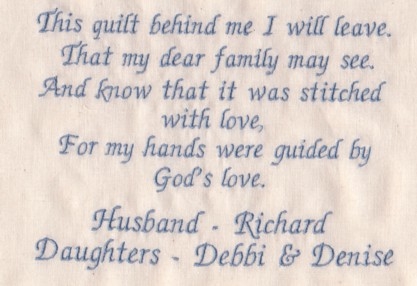 This quilt behind me I will leave.
That my dear family may see.
And know that it was stitched
with love,
For my hands were guided by
God's love.
Husband - Richard
Daughters - Debbi & Denise